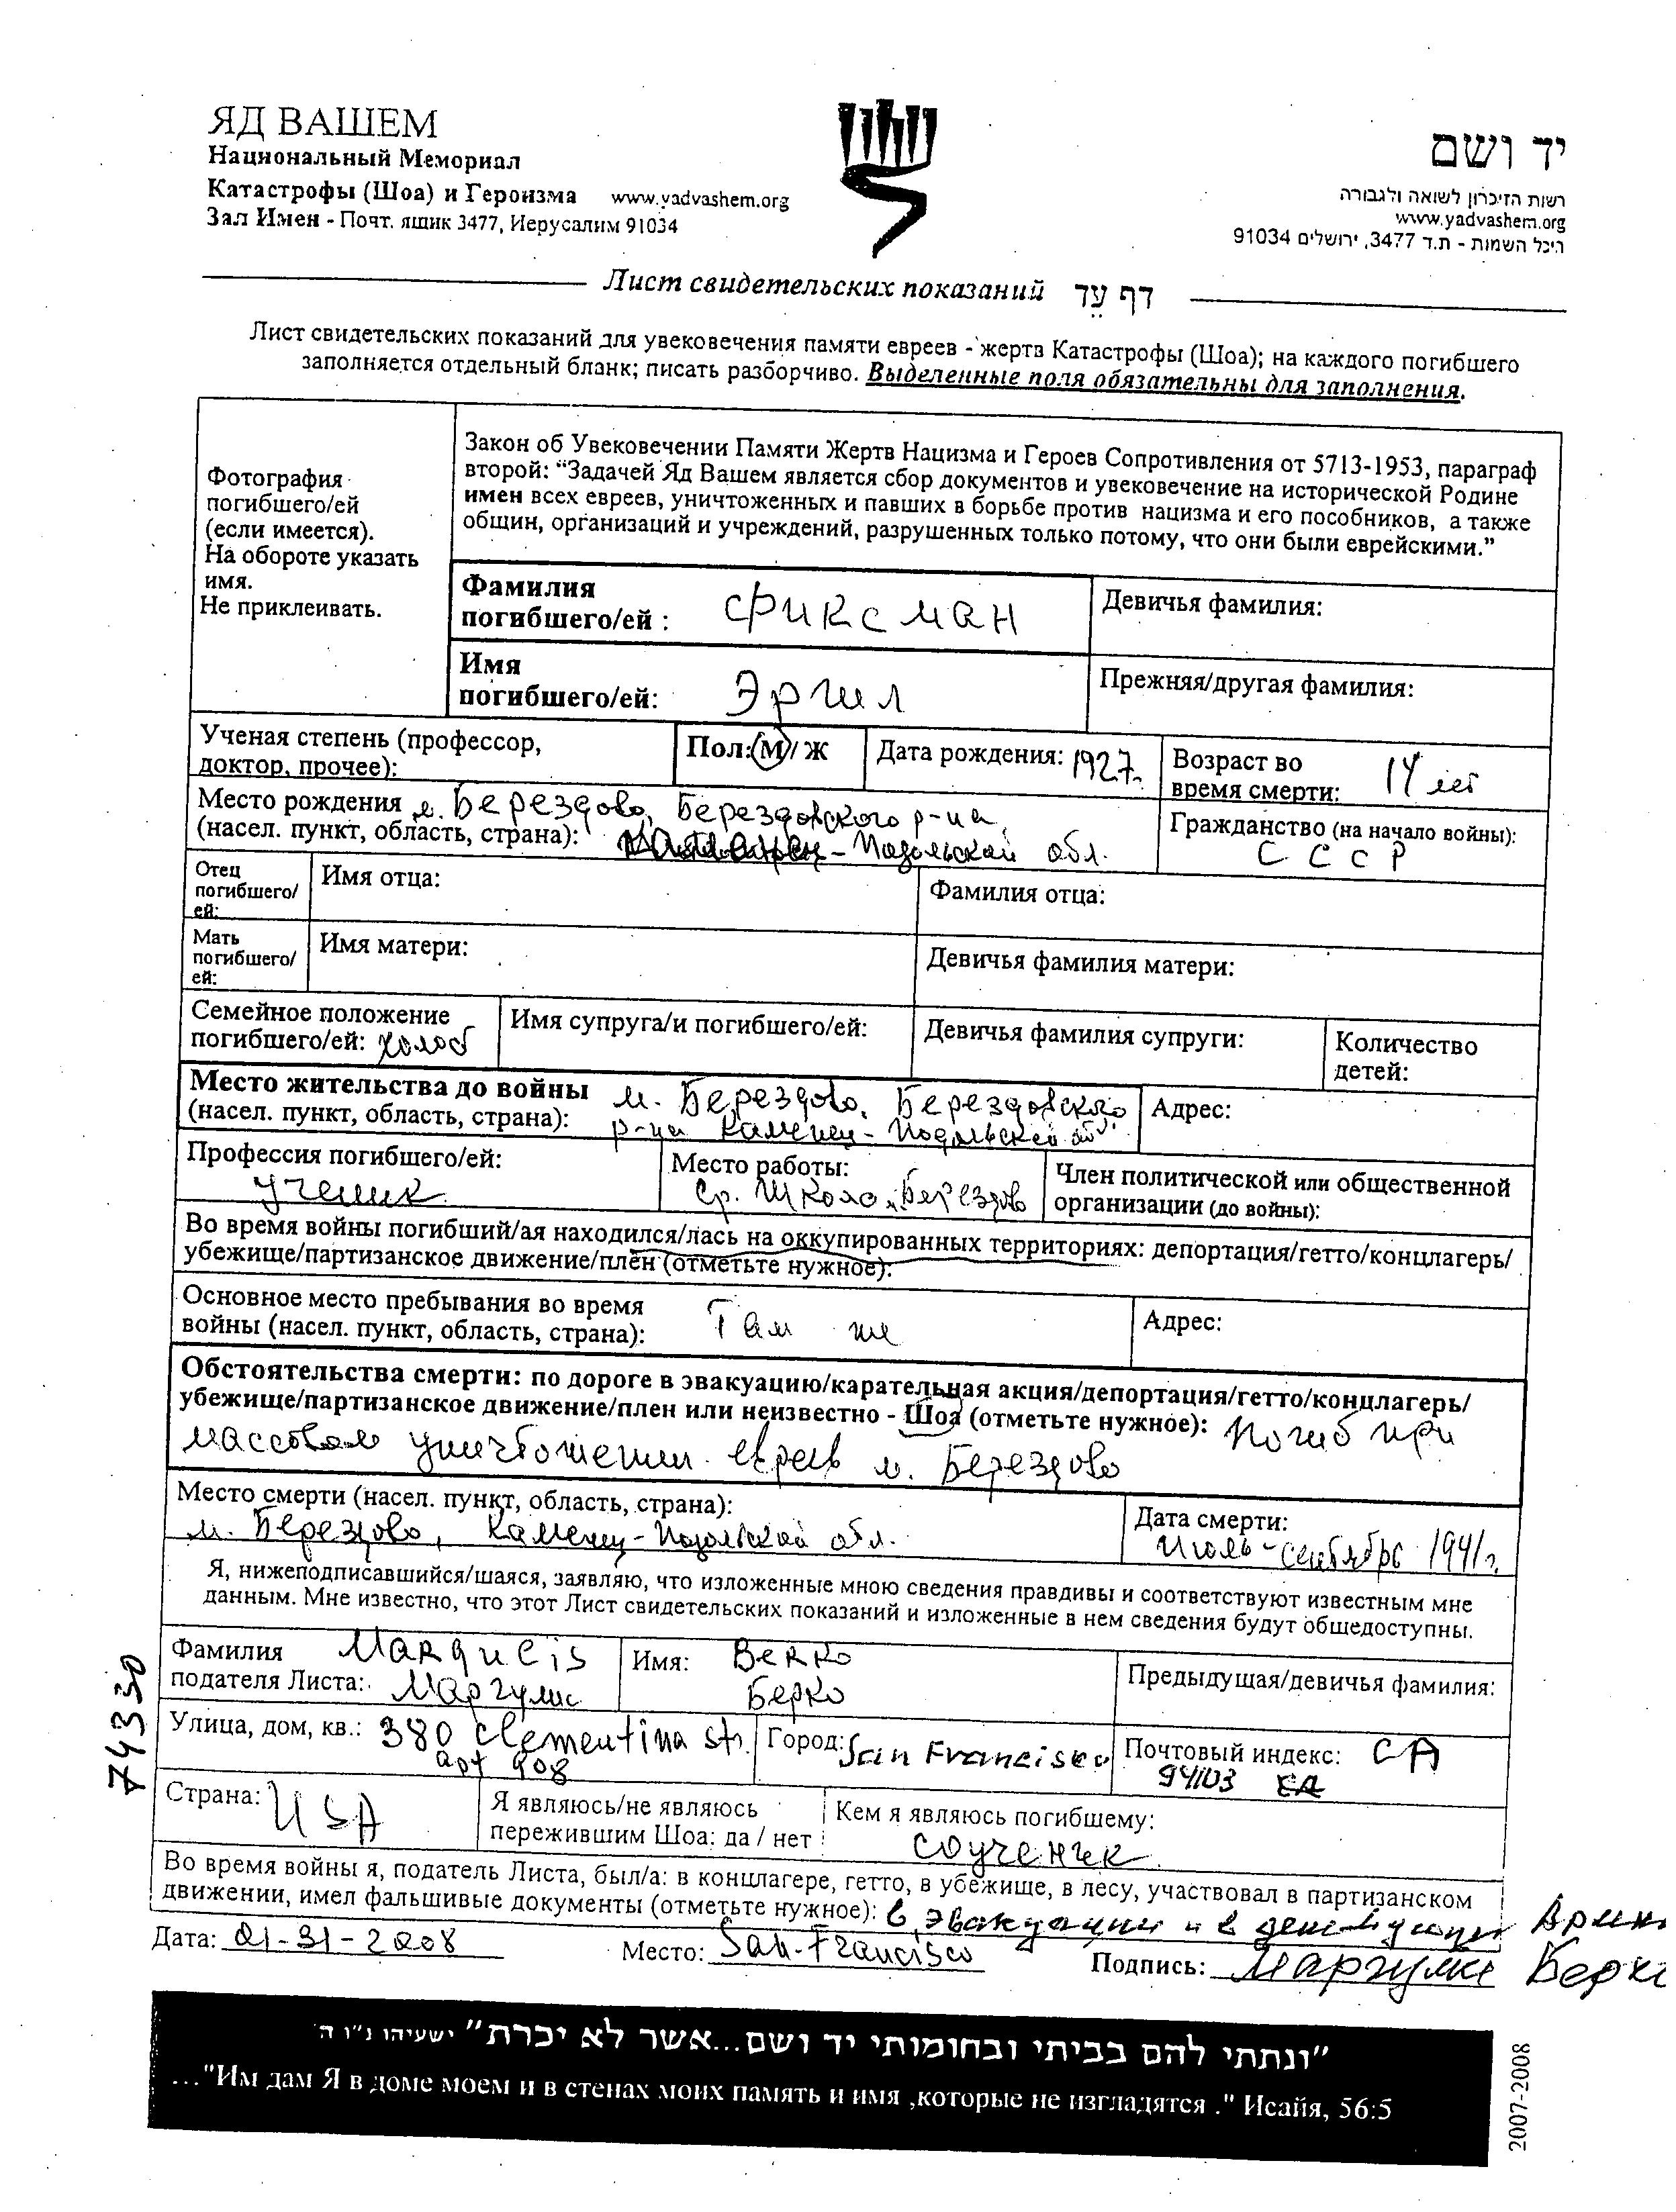 ЯД ВАШЕМ
Национальный Мемориал
Катастрофы (Шоа) и Героизма www.yadvashem.org
Зал Имен - Почт. ящик 3477, Иерусалим 91034
יד ושם
רשות הזיכרון לשואה ולגבורה
www.yadvashem.org
היכל השמות - ת.ד 3477, ירושלים 91034
Лист свидетельских показаний דף עֵד
Лист свидетельских показаний для увековечения памяти евреев - жертв Катастрофы (Шоа); на каждого погибшего
заполняется отдельный бланк; писать разборчиво. Выделенные поля обязательны для заполнения.
Фотография
погибшего/ей
(если имеется).
На обороте указать
имя.
Не приклеивать.
Закон об Увековечении Памяти Жертв Нацизма и Героев Сопротивления от 5713-1953, параграф
второй: “Задачей Яд Вашем является сбор документов и увековечение на исторической Родине
имен всех евреев, уничтоженных и павших в борьбе против нацизма и его пособников, а также
общин, организаций и учреждений, разрушенных только потому, что они были еврейскими.”
Фамилия
погибшего/ей : Фиксман
Девичья фамилия:
Имя
погибшего/ей:
Прежняя/другая фамилия:
Ученая степень (профессор,
доктор, прочее):
Пол: М / Ж
Дата рождения: 1927г.
Возраст во
время смерти: 14 лет
Место рождения м. Берездово, Берездовского р-на,
(насел. пункт, область, страна): Каменец-Подольской обл.
Гражданство (на начало войны):
СССР
Отец
погибшего/
ей:
Имя отца:
Фамилия отца:
Мать
погибшего/
ей:
Имя матери:
Девичья фамилия матери:
Семейное положение
погибшего/ей: холост
Имя супруга/и погибшего/ей:
Девичья фамилия супруги:
Количество
детей:
Место жительства до войны м. Берездово, Берездовского
(насел. пункт, область, страна): р-на Каменец-Подольской обл.
Адрес:
Профессия погибшего/ей:
ученик
Место работы:
ср. школа м. Берездово
Член политической или общественной
организации (до войны):
Во время войны погибший/ая находился/лась на оккупированных территориях: депортация/гетто/концлагерь/
убежище/партизанское движение/плен (отметьте нужное):
Основное место пребывания во время
войны (насел. пункт, область, страна): Там же
Адрес:
Обстоятельства смерти: по дороге в эвакуацию/карательная акция/депортация/гетто/концлагерь/
убежище/партизанское движение/плен или неизвестно - Шоа (отметьте нужное): Погиб при
массовом уничтожении евреев м. Берездово
Место смерти (насел. пункт, область, страна):
м. Берездово, Каменец-Подольской обл.
Дата смерти:
Июль-сентябрь 1941г.
Я, нижеподписавшийся/шаяся, заявляю, что изложенные мною сведения правдивы и соответствуют известным мне
данным. Мне известно, что этот Лист свидетельских показаний и изложенные в нем сведения будут общедоступны.
Фамилия Margulis
подателя Листа: Маргулис
Имя: Berko
Берко
Предыдущая/девичья фамилия:
Улица, дом, кв.: 380 Clementina str.
apt 908
Город: San Francisco
Почтовый индекс: CA
94103 CA
Страна: USA
Я являюсь/не являюсь
пережившим Шоа: да / нет
Кем я являюсь погибшему:
соученик
Во время войны я, податель Листа, был/а: в концлагере, гетто, в убежище, в лесу, участвовал в партизанском
движении, имел фальшивые документы (отметьте нужное): в эвакуации и в действующей Арми
Дата: 01-31-2008
Место: San-Francisco
Подпись: Маргулис Берко
74330
"ונתתי להם בביתי ובחומותי יד ושם...אשר לא יכרת" ישעיהו נ"ו ה'
..."Им дам Я в доме моем и в стенах моих память и имя ,которые не изгладятся ." Исайя, 56:5
2007-2008